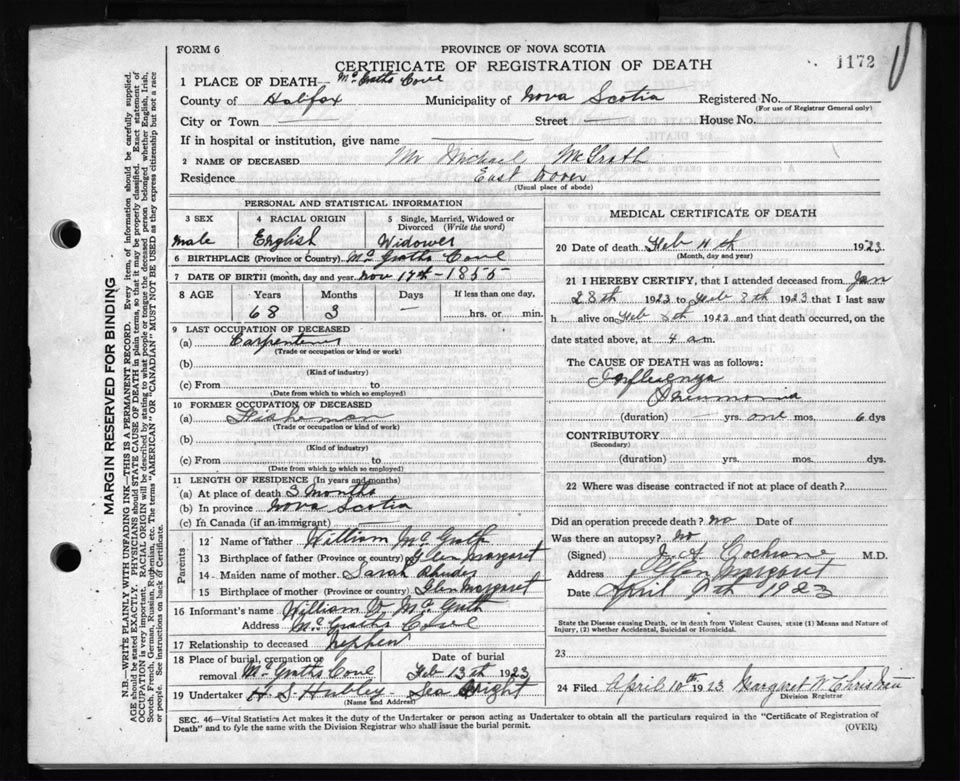 FORM 6
PROVINCE OF NOVA SCOTIA
CERTIFICATE OF REGISTRATION OF DEATH
1172
1 PLACE OF DEATH— McGraths Cove
County of Halifax Municipality of Nova Scotia Registered No.
(For use of Registrar General only)
City or Town Street House No.
If in hospital or institution, give name
2 NAME OF DECEASED Mr Michael McGrath
Residence East Dover
(Usual place of abode)
PERSONAL AND STATISTICAL INFORMATION
3 SEX 4 RACIAL ORIGIN 5 Single, Married, Widowed or Divorced (Write the word)
male English Widower
6 BIRTHPLACE (Province or Country) McGraths Cove
7 DATE OF BIRTH (month, day and year. Nov 17th - 1855
8 AGE Years Months Days If less than one day,
68 3 — hrs. or min.
9 LAST OCCUPATION OF DECEASED
(a) Carpenter
(Trade or occupation or kind or work)
(b)
(Kind of industry)
(c) From to
(Date from which to which so employed)
10 FORMER OCCUPATION OF DECEASED
(a) Fisherman
(Trade or occupation or kind of work)
(b)
(Kind of industry)
(c) From to
(Date from which to which so employed)
11 LENGTH OF RESIDENCE (In years and months)
(a) At place of death 3 Months
(b) In province Nova Scotia
(c) In Canada (if an immigrant)
Parents
12 Name of father William McGrath
13 Birthplace of father (Province or country) Glen Margaret
14 Maiden name of mother Sarah
15 Birthplace of mother (Province or country) Glen Margaret
16 Informant's name William W. McGrath
Address McGraths Cove
17 Relationship to deceased Nephew
18 Place of burial, cremation or removal McGraths Cove Date of burial Feb 13th 1923
19 Undertaker H. S. Hubley - Sea Bright
(Name and Address)
MEDICAL CERTIFICATE OF DEATH
20 Date of death Feb 11th 1923
(Month, day and year)
21 I HEREBY CERTIFY, that I attended deceased from Jan
28th 1923 to Feb 8th 1923 that I last saw
h alive on Feb 8th 1923 and that death occurred, on the
date stated above, at 4 a.m.
The CAUSE OF DEATH was as follows:
Influenza
Pneumonia
(duration) — yrs. one mos. 6 dys
CONTRIBUTORY
(Secondary)
(duration) yrs. mos. dys.
22 Where was disease contracted if not at place of death?
Did an operation precede death? No Date of
Was there an autopsy? No
(Signed) J. A. Cochrane M.D.
Address Glen Margaret
Date April 9th 1923
State the Disease causing Death, or in death from Violent Causes, state (1) Means and Nature of
Injury, (2) whether Accidental, Suicidal or Homicidal.
23
24 Filed April 10th 1923 Margaret W Christie
Division Registrar
SEC. 46—Vital Statistics Act makes it the duty of the Undertaker or person acting as Undertaker to obtain all the particulars required in the "Certificate of Registration of
Death" and to fyle the same with the Division Registrar who shall issue the burial permit.
(OVER)
MARGIN RESERVED FOR BINDING
N.B.—WRITE PLAINLY WITH UNFADING INK—THIS IS A PERMANENT RECORD. Every item, of information should be carefully supplied.
AGE should be stated EXACTLY. PHYSICIANS should STATE CAUSE OF DEATH in plain terms, so that it may be properly classified. Exact statement of
OCCUPATION is very important. RACIAL ORIGIN will be described by stating to what people or tongue the deceased person belonged whether English, Irish,
Scotch, French, German, Russian, Ruthenian, etc. The terms "AMERICAN" or "CANADIAN" MUST NOT BE USED as they express citizenship but not a race
or people. See instructions on back of Certificate.